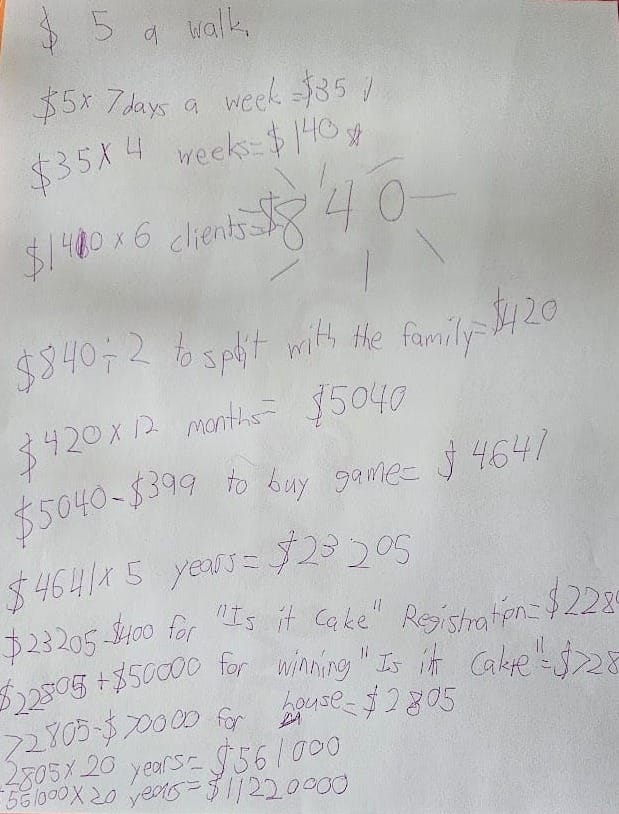 $ 5 a walk.
$5x 7days a week =$35
$35x4 weeks=$140
$140x6 clients=$840
$840÷2 to split with the family=$420
$420x12 months= $5040
$5040-$399 to buy game= $4641
$4641x5 years= $23205
$23205-$400 for "Is it Cake" Registration=$228
$22805+$50000 for winning "Is it Cake"=$728
72805-$70000 for house=$2805
2805x20 years= $561000
561000x20 years=$11220000